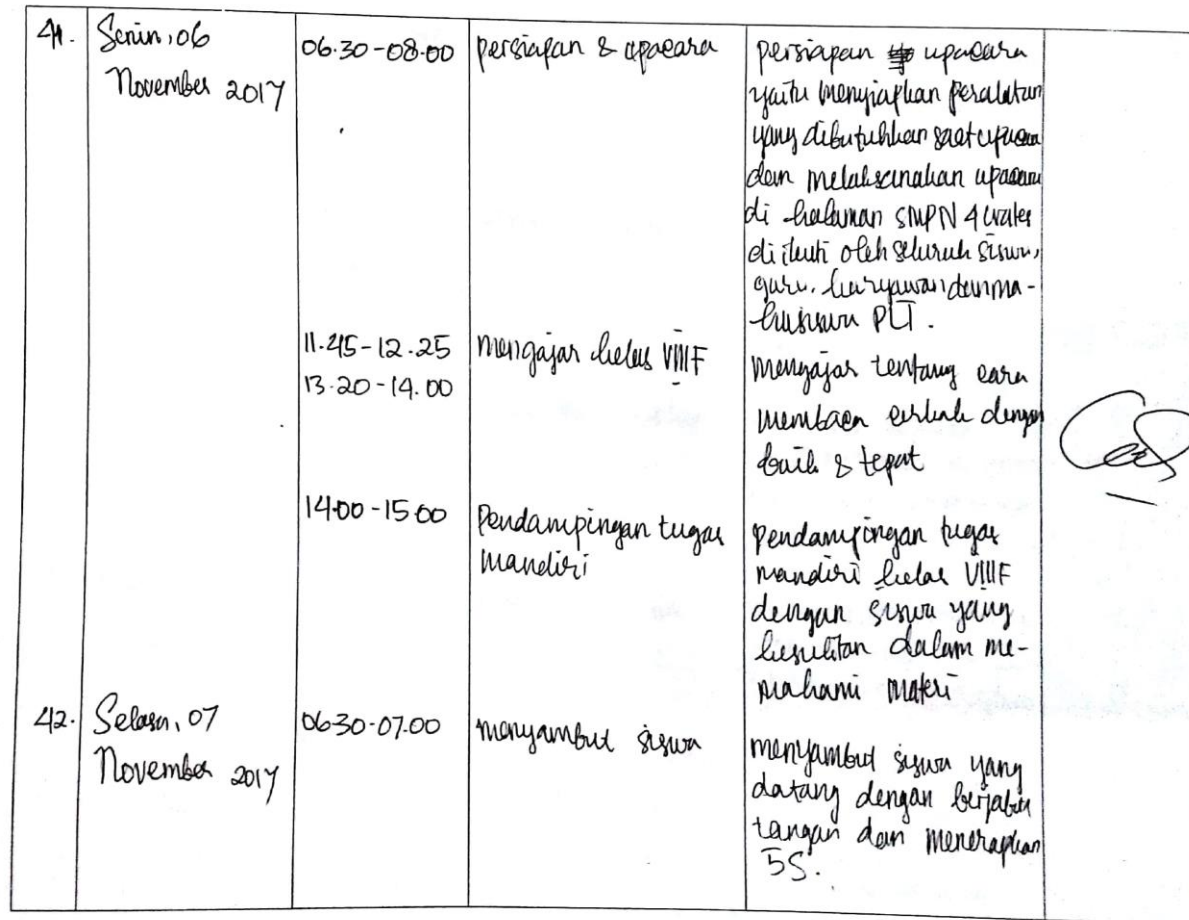 41.
Senin, 06
November 2017
06.30-08.00
persiapan & upacara
persiapan upacara
yaitu menyiapkan peralatan
yang dibutuhkan saat upacara
dan melaksanakan upacara
di halaman SMPN 4 Wates
diikuti oleh seluruh siswa,
guru, karyawan dan ma-
hasiswa PLT.
11.45-12.25
13.20-14.00
mengajar kelas VIIIF
mengajar tentang cara
membaca dengan
baik & tepat
14.00-15.00
Pendampingan tugas
mandiri
pendampingan tugas
mandiri kelas VIIIF
dengan siswa yang
kesulitan dalam me-
mahami materi
42.
Selasa, 07
November 2017
06.30-07.00
menyambut siswa
menyambut siswa yang
datang dengan berjabat
tangan dan menerapkan
5S.